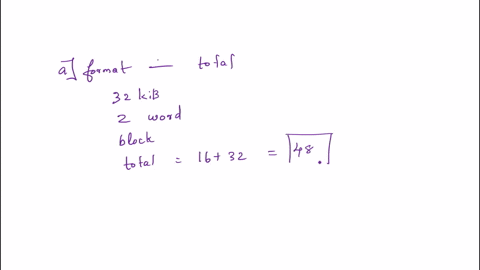 a] format — total
32 kiB
2 word
block
total = 16 + 32 = 48.